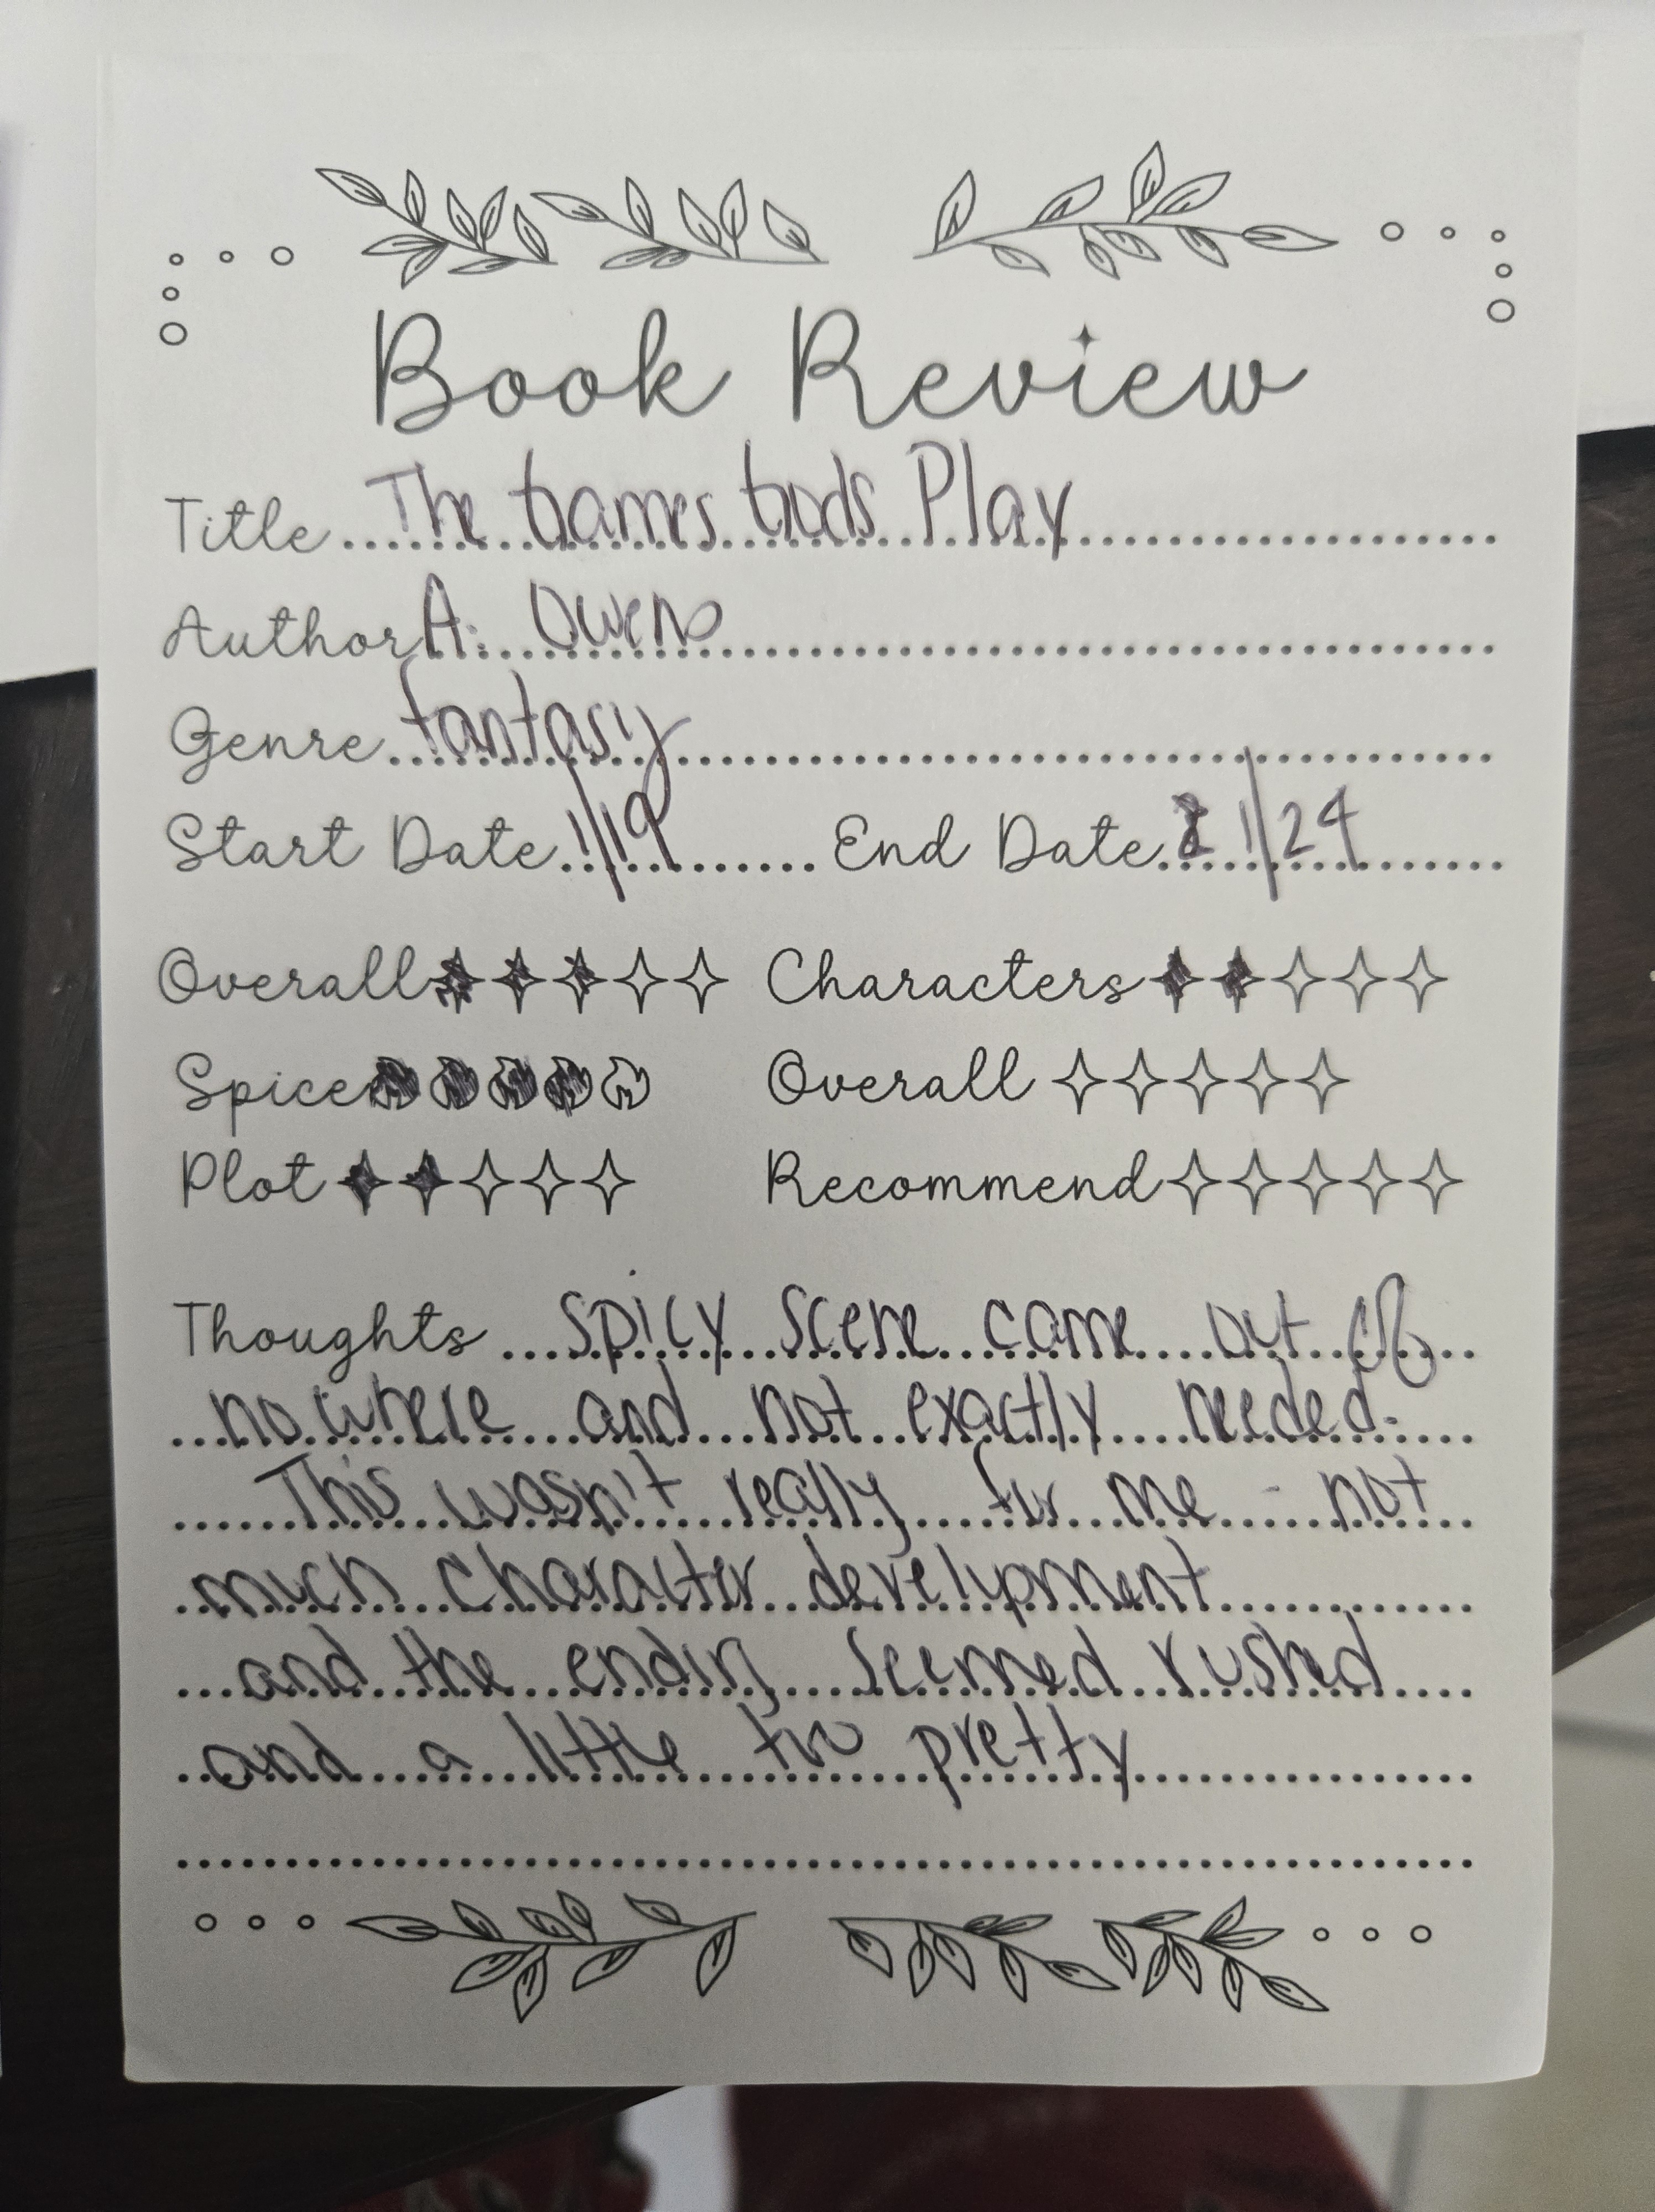 Book Review
Title The Games Gods Play
Author A. Owens
Genre fantasy
Start Date 1/19 End Date 1/24
Overall Characters
Spice Overall
Plot Recommend
Thoughts spicy scene came out of
nowhere and not exactly needed.
This wasn't really for me - not
much character development
and the ending seemed rushed
and a little too pretty